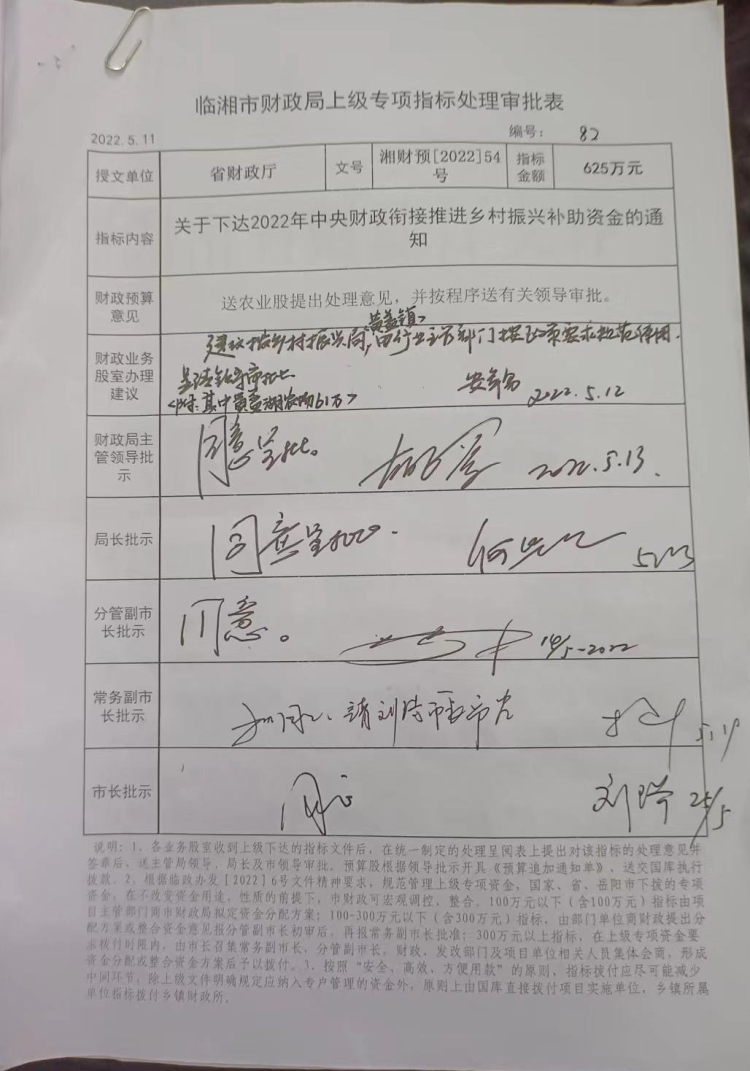 临湘市财政局上级专项指标处理审批表
2022.5.11
编号： 82
授文单位 省财政厅 文号 湘财预[2022]54号 指标金额 625万元
指标内容 关于下达2022年中央财政衔接推进乡村振兴补助资金的通知
财政预算意见 送农业股提出处理意见，并按程序送有关领导审批。
财政业务股室办理建议
黄盖镇
建议按乡村振兴局,由行业主管部门按政策要求规范使用.
呈请领导审批
2022.5.12
财政局主管领导批示 同意呈批。 2022.5.13.
局长批示 同意呈批.
分管副市长批示 同意。 2022
常务副市长批示
市长批示 同意 刘琤 25/5
说明：1、各业务股室收到上级下达的指标文件后，在统一制定的处理呈阅表上提出对该指标的处理意见并
签章后、送主管局领导、局长及市领导审批。预算股根据领导批示开具《预算追加通知单》，送交国库执行
拨款。2、根据临政办发[2022]6号文件精神要求，规范管理上级专项资金，国家、省、岳阳市下拨的专项
资金，在不改变资金用途、性质的前提下，市财政可宏观调控、整合。100万元以下（含100万元）指标由项
目主管部门商市财政局拟定资金分配方案；100-300万元以下（含300万元）指标，由部门单位商财政提出分
配方案或整合资金意见报分管副市长初审后，再报常务副市长批准；300万元以上指标，在上级专项资金要
求拨付时限内，由市长召集常务副市长，分管副市长，财政、发改部门及项目单位相关人员集体会商，形成
资金分配或整合资金方案后予以拨付。3、按照“安全、高效、方便用款”的原则，指标拨付应尽可能减少
中间环节，除上级文件明确规定应纳入专户管理的资金外，原则上由国库直接拨付项目实施单位，乡镇所属
单位指标拨付乡镇财政所。